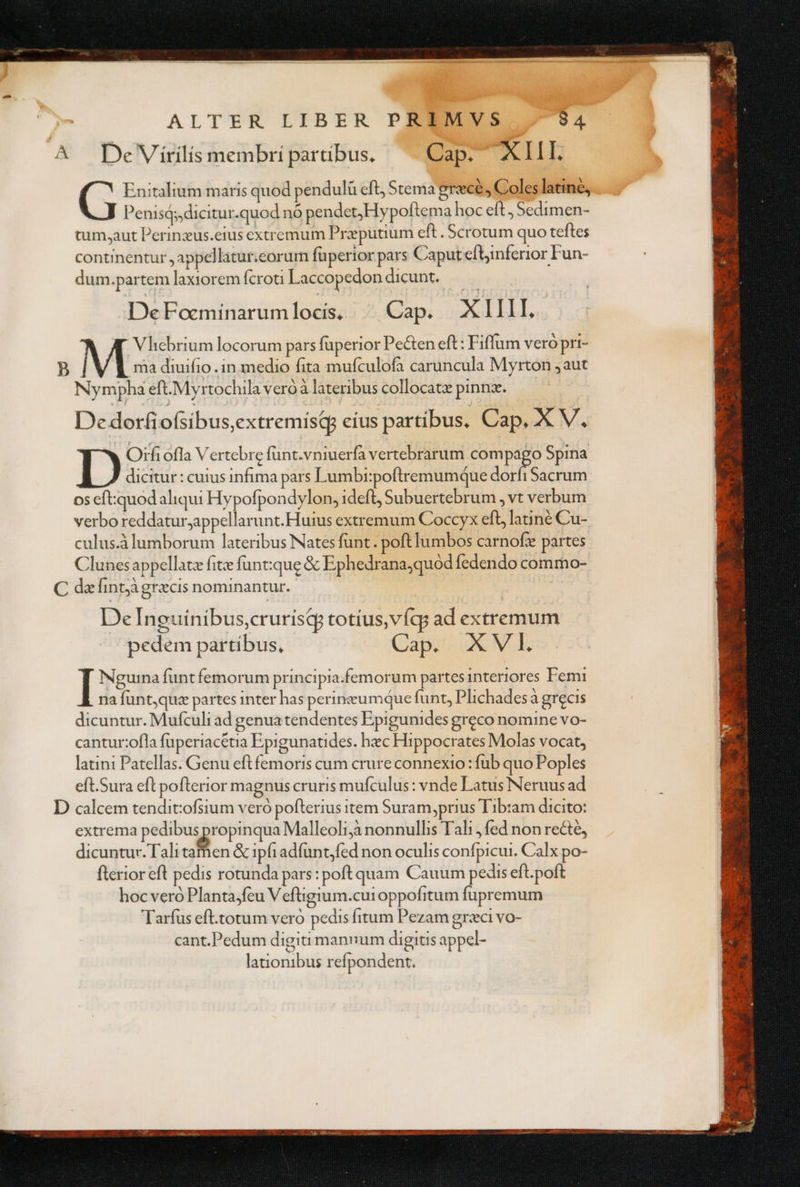 ALTER LIBER PRIMVS 84
A De Virilis membri partibus, Cap. XIII.
GEnitalium maris quod pendulũ eſt, Stema græcè, Coles latinè,
Penisq́;,dicitur.quod nõ pendet,Hypoſtema hoc eſt, Sedimen-
tum,aut Perinæus.eius extremum Præputium eſt. Scrotum quo teſtes
continentur, appellatur:eorum ſuperior pars Caput eſt,inferior Fun-
dum.partem laxiorem ſcroti Laccopedon dicunt.
De Fœminarum locis, Cap. XIIII.
MVliebrium locorum pars ſuperior Pecten eſt: Fiſſum verò pri-
B ma diuiſio.in medio ſita muſculoſa caruncula Myrton, aut
Nympha eſt.Myrtochila verò à lateribus collocatæ pinnæ.
De dorſi oſsibus,extremisq́; eius partibus. Cap. XV.
DOrſi oſſa Vertebrę ſunt.vniuerſa vertebrarum compago Spina
dicitur: cuius infima pars Lumbi:poſtremumque dorſi Sacrum
os eſt:quod aliqui Hypoſpondylon, ideſt, Subuertebrum, vt verbum
verbo reddatur,appellarunt.Huius extremum Coccyx eſt, latinè Cu-
culus.à lumborum lateribus Nates ſunt. poſt lumbos carnoſæ partes
Clunes appellatæ ſitæ ſunt:quę & Ephedrana,quòd ſedendo commo-
C dæ ſint,à græcis nominantur.
De Inguinibus,crurisq́; totius,vſq; ad extremum
pedem partibus, Cap. XVI.
INguina ſunt femorum principia.femorum partes interiores Femi
na ſunt,quæ partes inter has perinæumque ſunt, Plichades à gręcis
dicuntur. Muſculi ad genua tendentes Epigunides gręco nomine vo-
cantur:oſſa ſuperiacētia Epigunatides. hæc Hippocrates Molas vocat,
latini Patellas. Genu eſt femoris cum crure connexio: ſub quo Poples
eſt.Sura eſt poſterior magnus cruris muſculus: vnde Latus Neruus ad
D calcem tendit:oſsium verò poſterius item Suram,prius Tibiam dicito:
extrema pedibus propinqua Malleoli,à nonnullis Tali, ſed non rectè,
dicuntur.Tali tamen & ipſi adſunt,ſed non oculis conſpicui. Calx po-
ſterior eſt pedis rotunda pars: poſt quam Cauum pedis eſt.poſt
hoc verò Planta,ſeu Veſtigium.cui oppoſitum ſupremum
Tarſus eſt.totum verò pedis ſitum Pezam græci vo-
cant.Pedum digiti manuum digitis appel-
lationibus reſpondent.